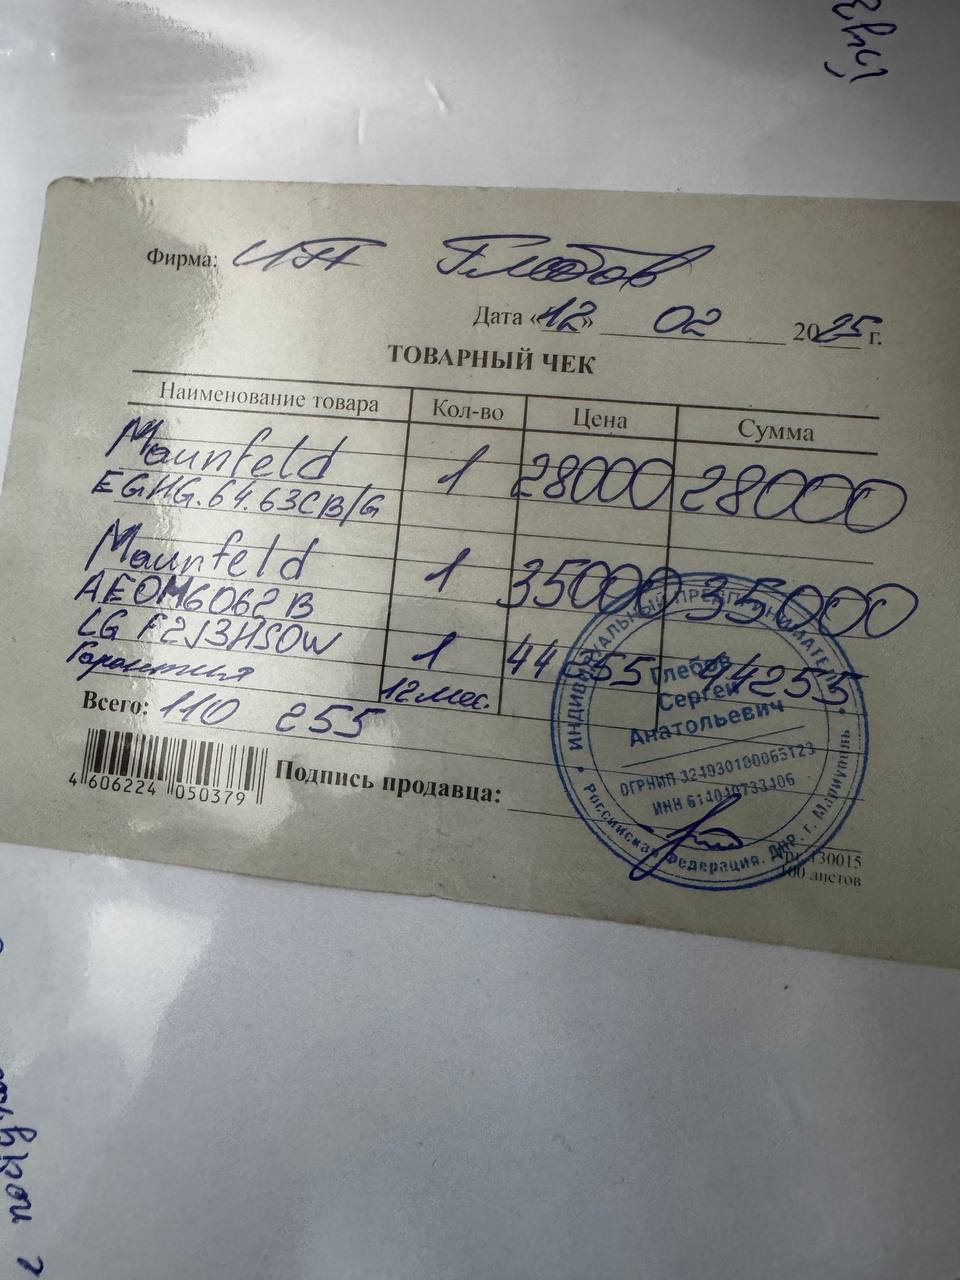 Фирма: ИП Глебов
Дата «12» 02 2025 г.
ТОВАРНЫЙ ЧЕК
Наименование товара Кол-во Цена Сумма
Maunfeld 1 28000 28000
EGHG.64.63CB/G
Maunfeld 1 35000 35000
AEOM6062B
LG F2J3HS0W 1 44255 44255
Гарантия 12 мес.
Всего: 110 255
Подпись продавца:
4 606224 050379
ИНДИВИДУАЛЬНЫЙ ПРЕДПРИНИМАТЕЛЬ
Глебов
Сергей
Анатольевич
ОГРНИП
ИНН
Российская Федерация, ДНР, г. Мариуполь
130015
100 листов